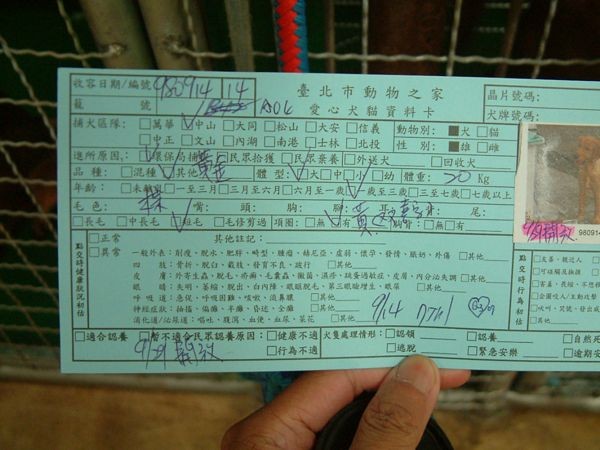 收容日期/編號 980914 14 臺北市動物之家 晶片號碼:
籠 號 A04 愛心犬貓資料卡 犬牌號碼:
捕犬區隊: □萬華 ✓中山 □大同 □松山 □大安 □信義 動物別: ■犬 □貓
□中正 □文山 □內湖 □南港 □士林 □北投 性 別: ■雄 □雌
進所原因: ✓環保局捕 □民眾拾獲 □民眾棄養 □外送犬 □回收犬
品 種: □混種 ✓其他 黃金 體 型: ✓大 □中 □小 □幼 體重: 20 Kg
年齡: □未離乳 □一至三月 □三月至六月 □六月至一歲 ✓一歲至三歲 □三至七歲 □七歲以上
毛 色: 嘴: 頭: 胸: 腳: 耳: 背: 尾:
□長毛 □中長毛 ✓短毛 □毛修剪過 項圈: □無 ✓有 胸背: □無 □有
點交時健康狀況初估 □正常 其他註記:
□異常 一般外表: 削瘦、脫水、肥胖、畸型、腫瘤、赫尼亞、虛弱、懷孕、發情、脈奶、外傷
四 肢: 骨折、脫臼、截肢、發育不良、跛行 □其他
皮 膚: 外寄生蟲、脫毛、疥癬、毛囊蟲、黴菌、濕疹、跳蚤過敏症、皮膚、內分泌失調 □其他
眼 睛: 失明、萎縮、脫出、白內障、眼瞼脫毛、第三眼瞼增生、眼屎 □其他
呼 吸 道: 急促、呼吸困難、咳嗽、流鼻膿 □其他
神經症狀: 抽搐、偏癱、半癱、昏迷、全癱 □其他
消化道/泌尿道: 嘔吐、腹瀉、血便、血尿、菜花 □其他
9/14
□適合認養 □暫不適合民眾認養原因: □健康不適 犬隻處理情形: □認領 □認養 □自然死
9/21 開放 □行為不適 □逃脫 □緊急安樂 □逾期安
9/21 開放 980914
點交時行為初估